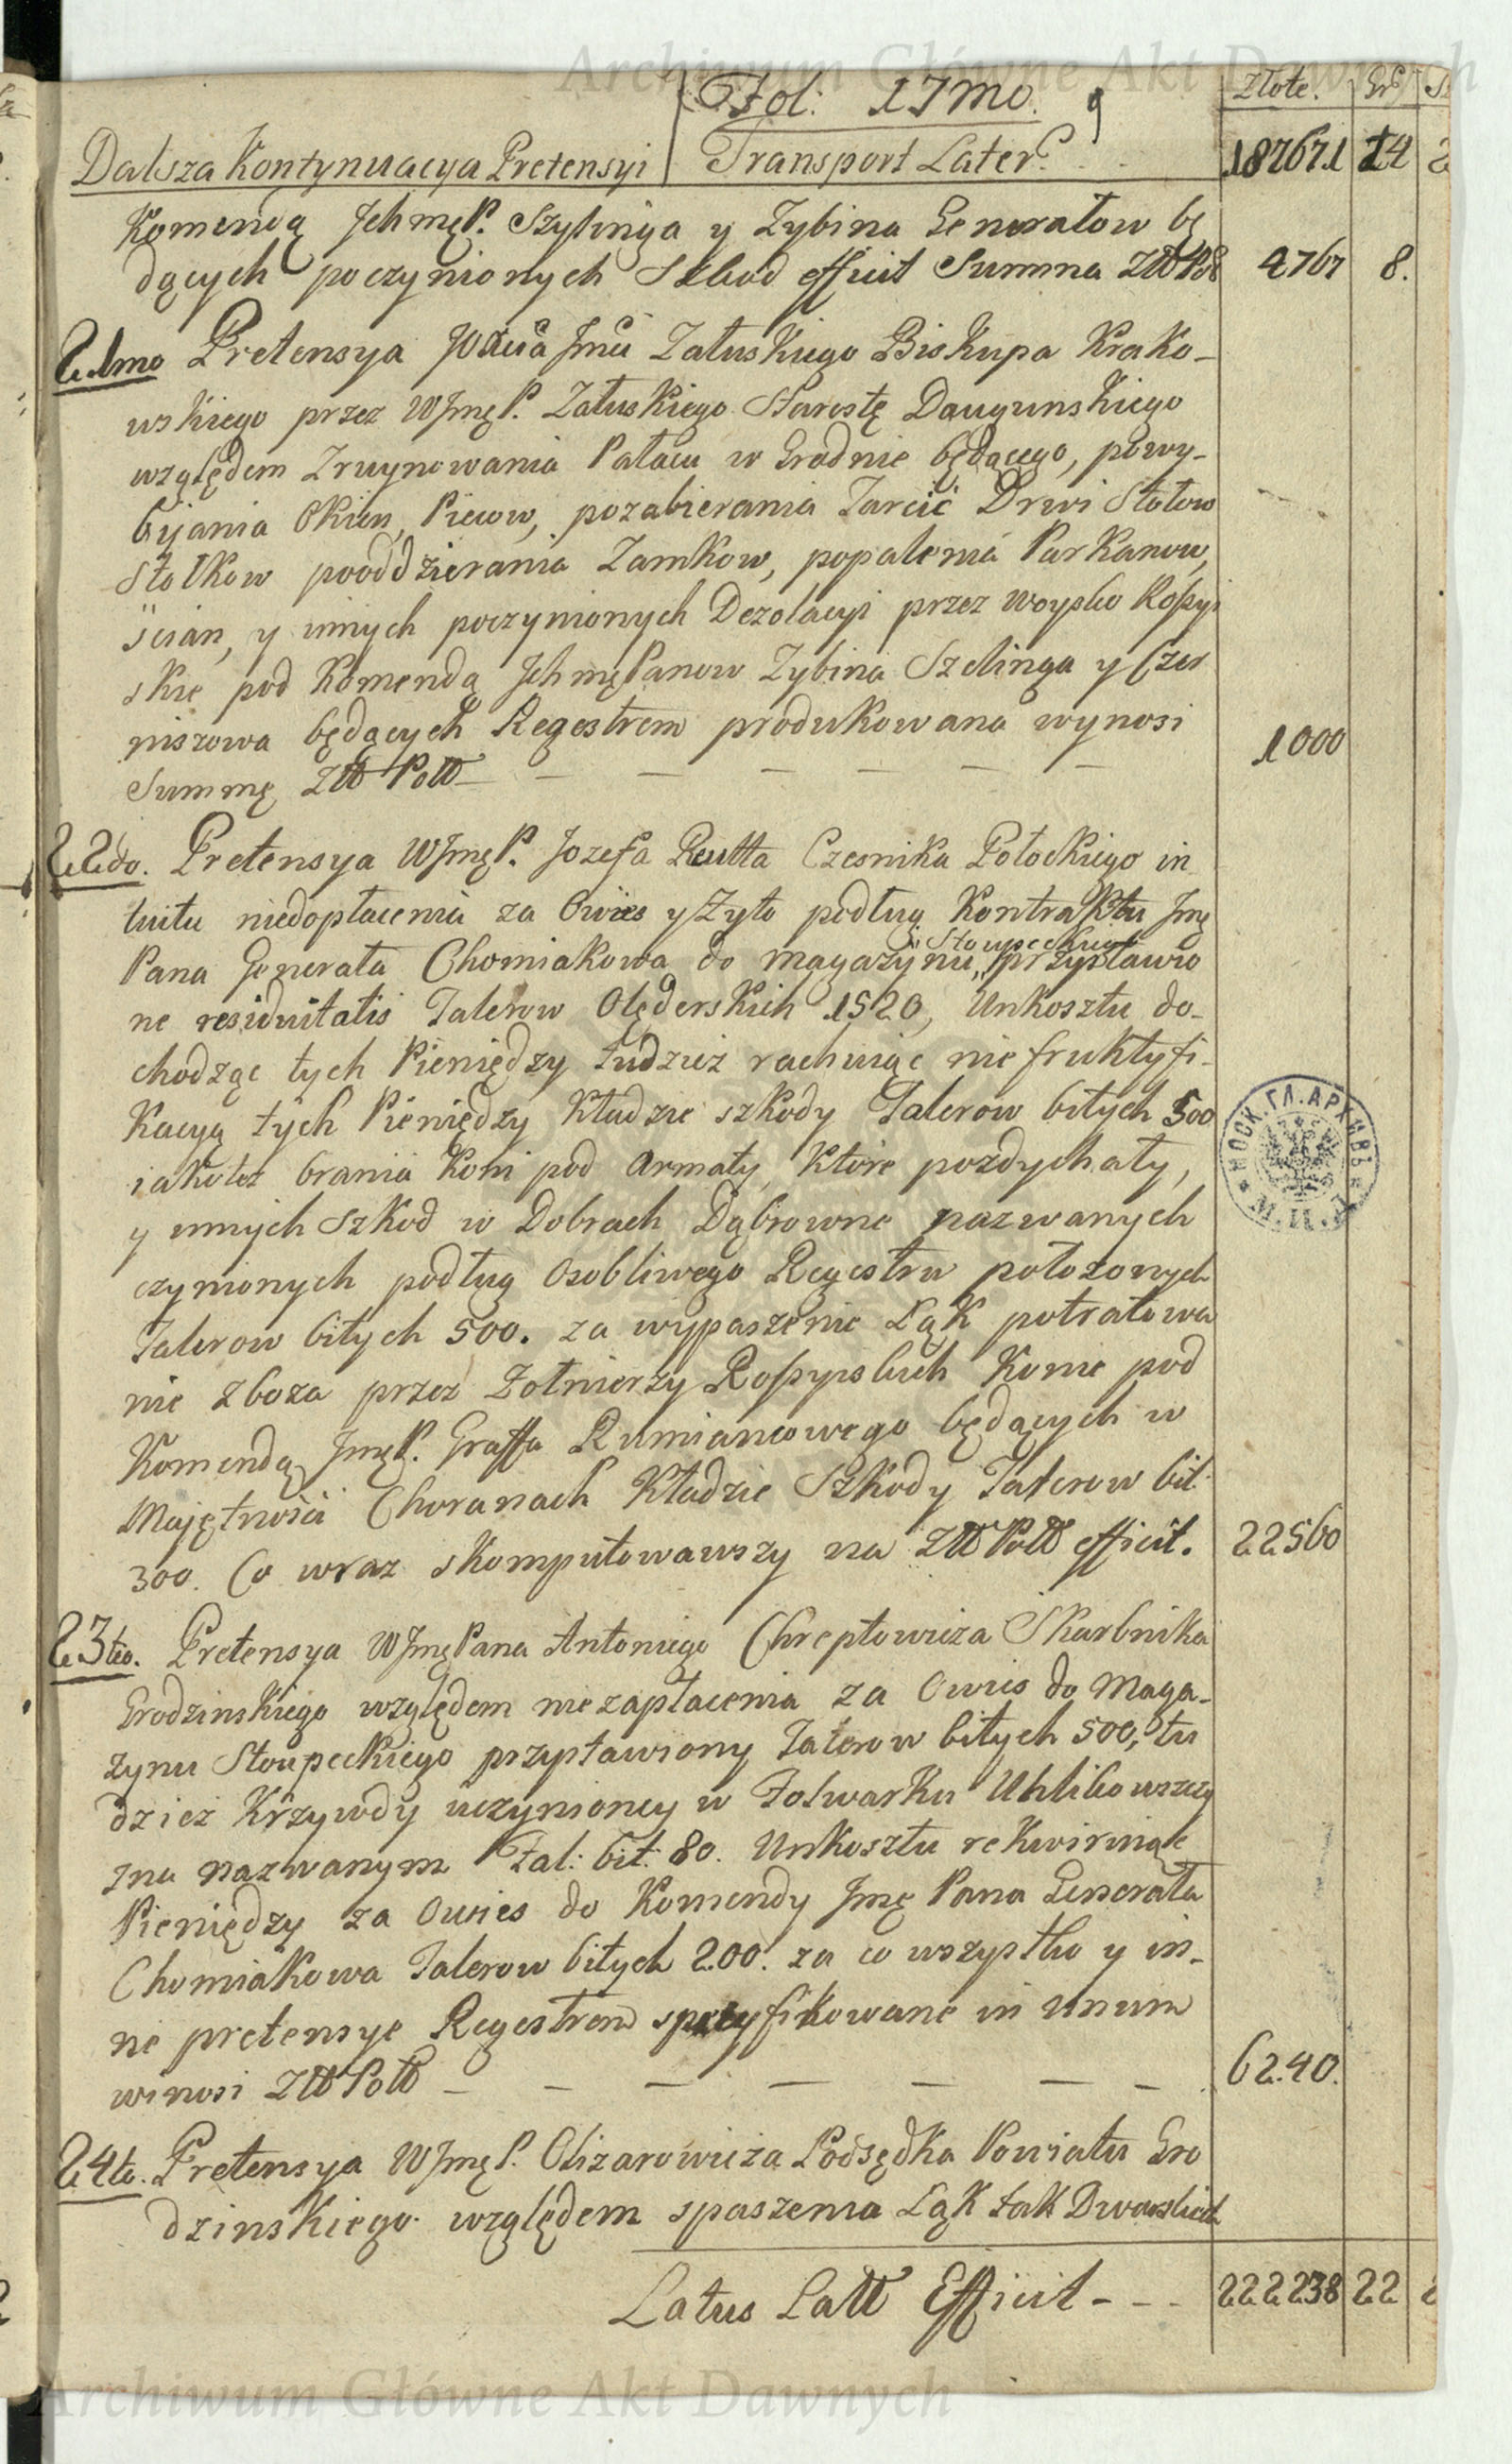 Archiwum Główne Akt Dawnych
Fol: 17mo. 9
Złote. Gr S
Dalsza Kontynuacya Pretensyi Transport Later. 187671 14 2
Komendą Jchmę P. Szylinga y Zybina Generałow bę
dących poczynionych Szkod efficit Summa Złł Poł 4767 8.
21mo Pretensya Jmci Załuskiego Biskupa Krako-
wskiego przez WJmę P. Załuskiego Starostę Daugunskiego
względem Zruynowania Pałacu w Grodnie będącego, powy-
bijania Okien, Piecow, pozabierania Tarcic Drwi Stołow
Stołkow pooddzierania Zamkow, popalenia Parkanow,
scian, y innych poczynionych Dezolacyi przez woysko Rossyi
skie pod Komendą Jchmę Panow Zybina Szelinga y Czer
niszowa będących Regestrem produkowana wynosi
Summę Złł Poll — — — — — — 1000
22do. Pretensya WJmę P. Jozefa Reutta Czesnika Połockiego in
tuitu niedopłacenia za Owies y Zyto podług Kontraktu Jmę
Stoupeckiego
Pana Generała Chomiakowa do magazynu, przystawio
ne residuitatis Talerow Olęderskich 1520, Unkosztu do-
chodząc tych Pieniędzy tudziez rachuiąc nie fruktyfi-
kacyą tych Pieniędzy kładzie szkody Talerow bitych 500
iakotez brania Koni pod Armaty, ktore pozdychały,
y innych Szkod w Dobrach Dąbrowne nazwanych
czynionych podług Osobliwego Regestru połozonych
Talerow bitych 500. za wypaszenie Łąk potratowa
nie zboza przez Zołnierzy Rossyiskich Konie pod
Komendą Jmę P. Graffa Rumiancowego będących w
Majętnosci Choranach kładzie Szkody Talerow bit:
300. Co wraz skomputowawszy na Złł Poll efficit. 22560
МОСК. ГЛ. АРХИВЪ М.И.Д.
23tio. Pretensya WJmę Pana Antoniego Chreptowicza Skarbnika
Grodzinskiego względem niezapłacenia za Owies do Maga-
zynu Stoupeckiego przystawiony Talerow bitych 500, tu
dziez Krzywdy uczynioney w Folwarku Uhlikowszczy
zna nazwanym Tal: bit: 80. Unkosztu rekwiruiąc
Pieniędzy za Owies do Komendy Jmę Pana Generała
Chomiakowa Talerow bitych 200. za co wszystko y in-
ne pretensye Regestrem specyfikowane in unum
winosi Złł Poll — — — — — — 6240.
24to. Pretensya WJmę P. Olizarowicza Podsędka Powiatu Gro
dzinskiego względem spaszenia Łąk tak Dworskich
Latus Latt Efficit - - - 222238 22 2
Archiwum Główne Akt Dawnych